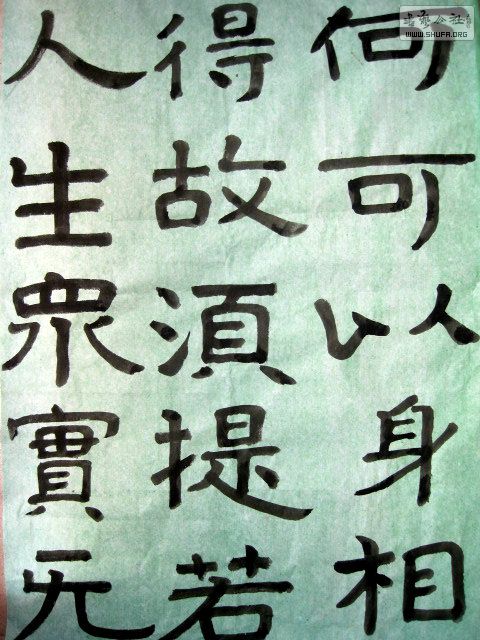 何可以身相
得故湏提若
人生眾實无
書藝公社
WWW.SHUFA.ORG